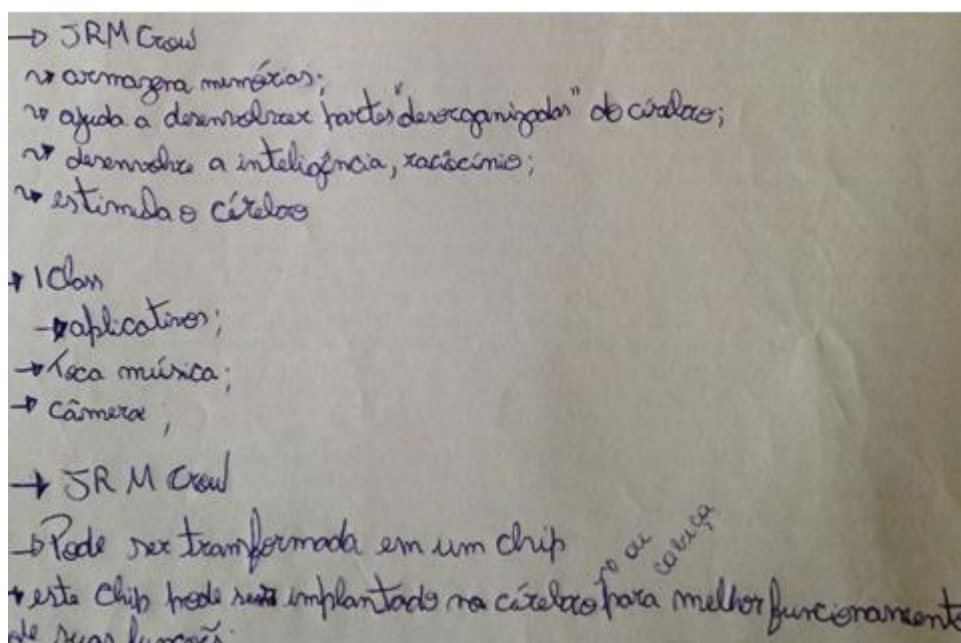 → JRM Crow
↝ armazena memórias;
↝ ajuda a desenvolver partes "desorganizadas" do cérebro;
↝ desenvolve a inteligência, raciocínio;
↝ estimula o cérebro
→ I Class
→ aplicativos;
→ Toca música;
→ Câmera;
→ JRM Crow
→ Pode ser transformada em um chip
ou cabeça
→ este chip pode ser implantado na cérebro para melhor funcionamento
de suas funções.